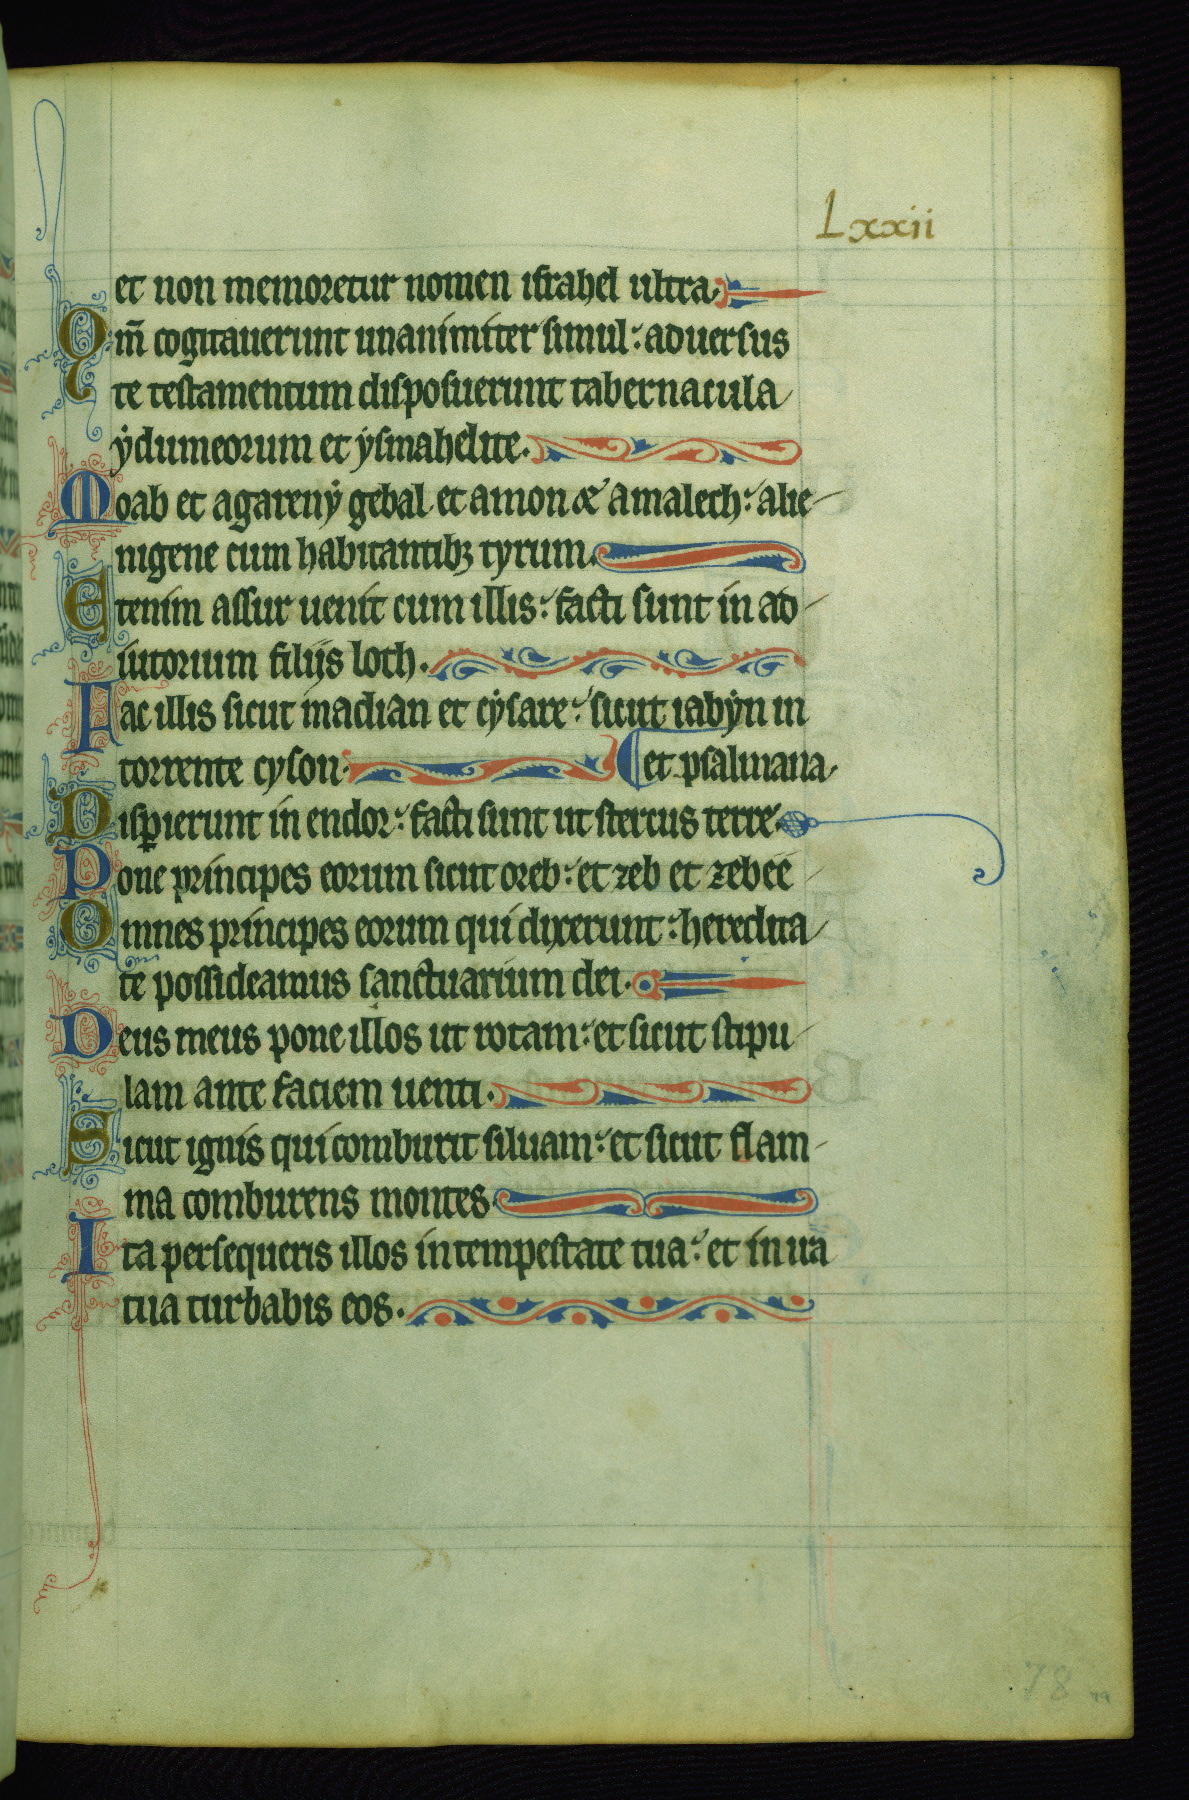 Lxxii
et non memoretur nomen israhel ultra.
Qm̄ cogitauerunt unanimiter simul: aduersus
te testamentum disposuerunt tabernacula
ydumeorum et ysmahelite.
Moab et agareny gebal et amon & amalech: alie
nigene cum habitantibꝫ tyrum.
Etenim assur uenit cum illis: facti sunt in ad
iutorium filijs loth.
Fac illis sicut madian et cysare: sicut iabyn in
torrente cyson. et psalmana.
Disꝑierunt in endor: facti sunt ut stercus terre.
Pone principes eorum sicut oreb: et zeb et zebee
Omnes principes eorum qui dixerunt: heredita
te possideamus sanctuarium dei.
Deus meus pone illos ut rotam: et sicut stipu
lam ante faciem uenti.
Sicut ignis qui comburit siluam: et sicut flam
ma comburens montes.
Ita persequeris illos in tempestate tua: et in ira
tua turbabis eos.
78